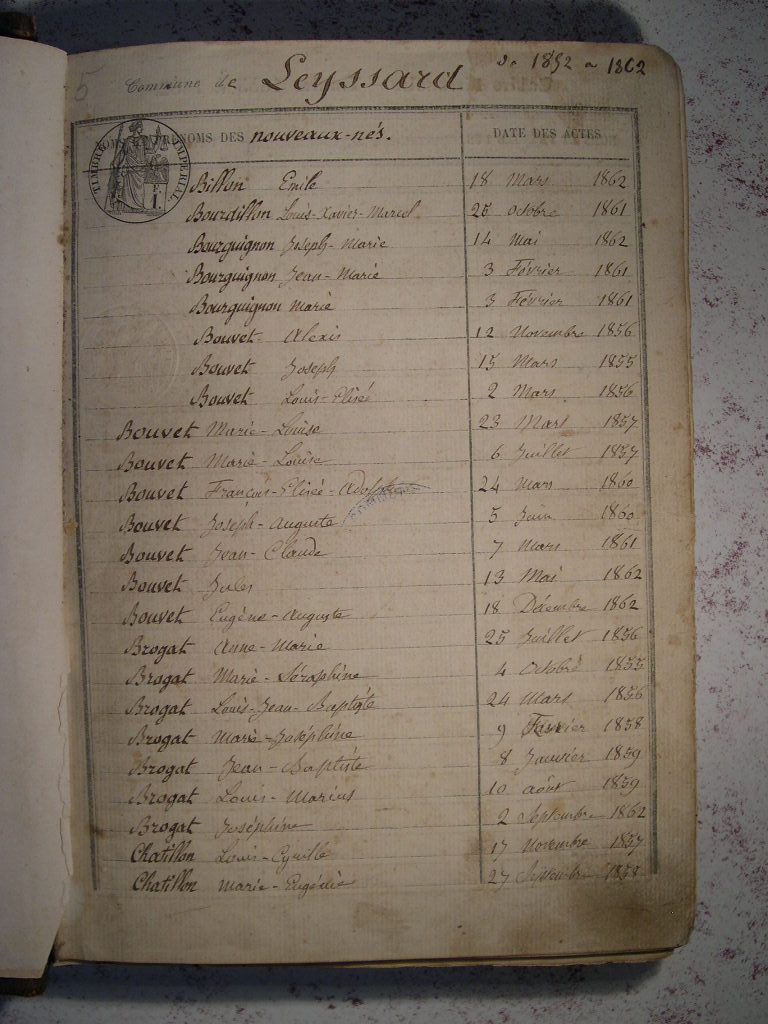 5 Commune de Leyssard De 1852 a 1862
NOMS PRÉNOMS DES nouveaux-nés. DATE DES ACTES
TIMBRE IMPÉRIAL 1 F.
Billon Emile 18 Mars 1862
Bourdillon Louis-Xavier-Marcel 26 octobre 1861
Bourguignon Joseph-Marie 14 Mai 1862
Bourguignon Jean-Marie 3 Février 1861
Bourguignon Marie 3 Février 1861
Bouvet Alexis 12 Novembre 1856
Bouvet Joseph 15 Mars 1855
Bouvet Louis-Elisée 2 Mars 1856
Bouvet Marie-Louise 23 Mars 1857
Bouvet Marie-Louise 6 Juillet 1857
Bouvet François-Elisée-Adolphe 24 Mars 1860
Bouvet Joseph-Auguste 5 Juin 1860
Bouvet Jean-Claude 7 Mars 1861
Bouvet Jules 13 Mai 1862
Bouvet Eugène-Auguste 18 Décembre 1862
Brogat Anne-Marie 25 Juillet 1856
Brogat Marie-Séraphine 4 Octobre 1855
Brogat Louis-Jean-Baptiste 24 Mars 1856
Brogat Marie-Joséphine 9 Février 1858
Brogat Jean-Baptiste 8 Janvier 1859
Brogat Louis-Marius 10 août 1859
Brogat Joséphine 2 Septembre 1862
Chatillon Louis-Cyrille 17 Novembre 1857
Chatillon Marie-Eugénie 27 1858